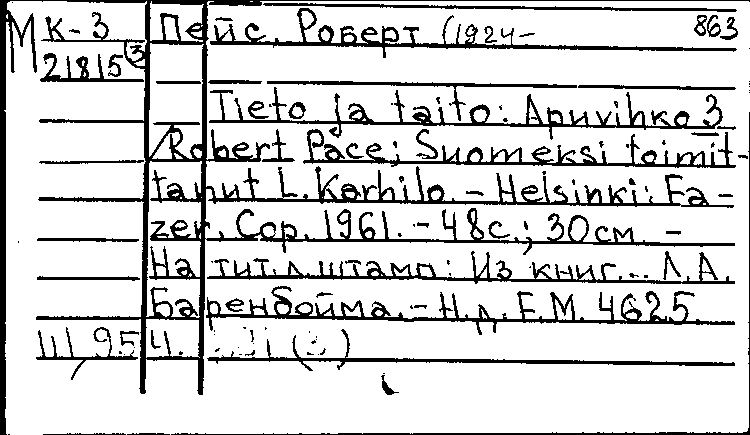 М К-3 Пейс, Роберт (1924- 863
21815 (3)
Tieto ja taito: Apuvihko 3
/ Robert Pace; Suomeksi toimit-
tanut L. Karhilo. - Helsinki: Fa-
zer, Cop. 1961. - 48с.; 30см. -
На тит. л. штамп: Из книг... Л.А.
Баренбойма. - Н.д. F.M. 4625.
III 95 4.